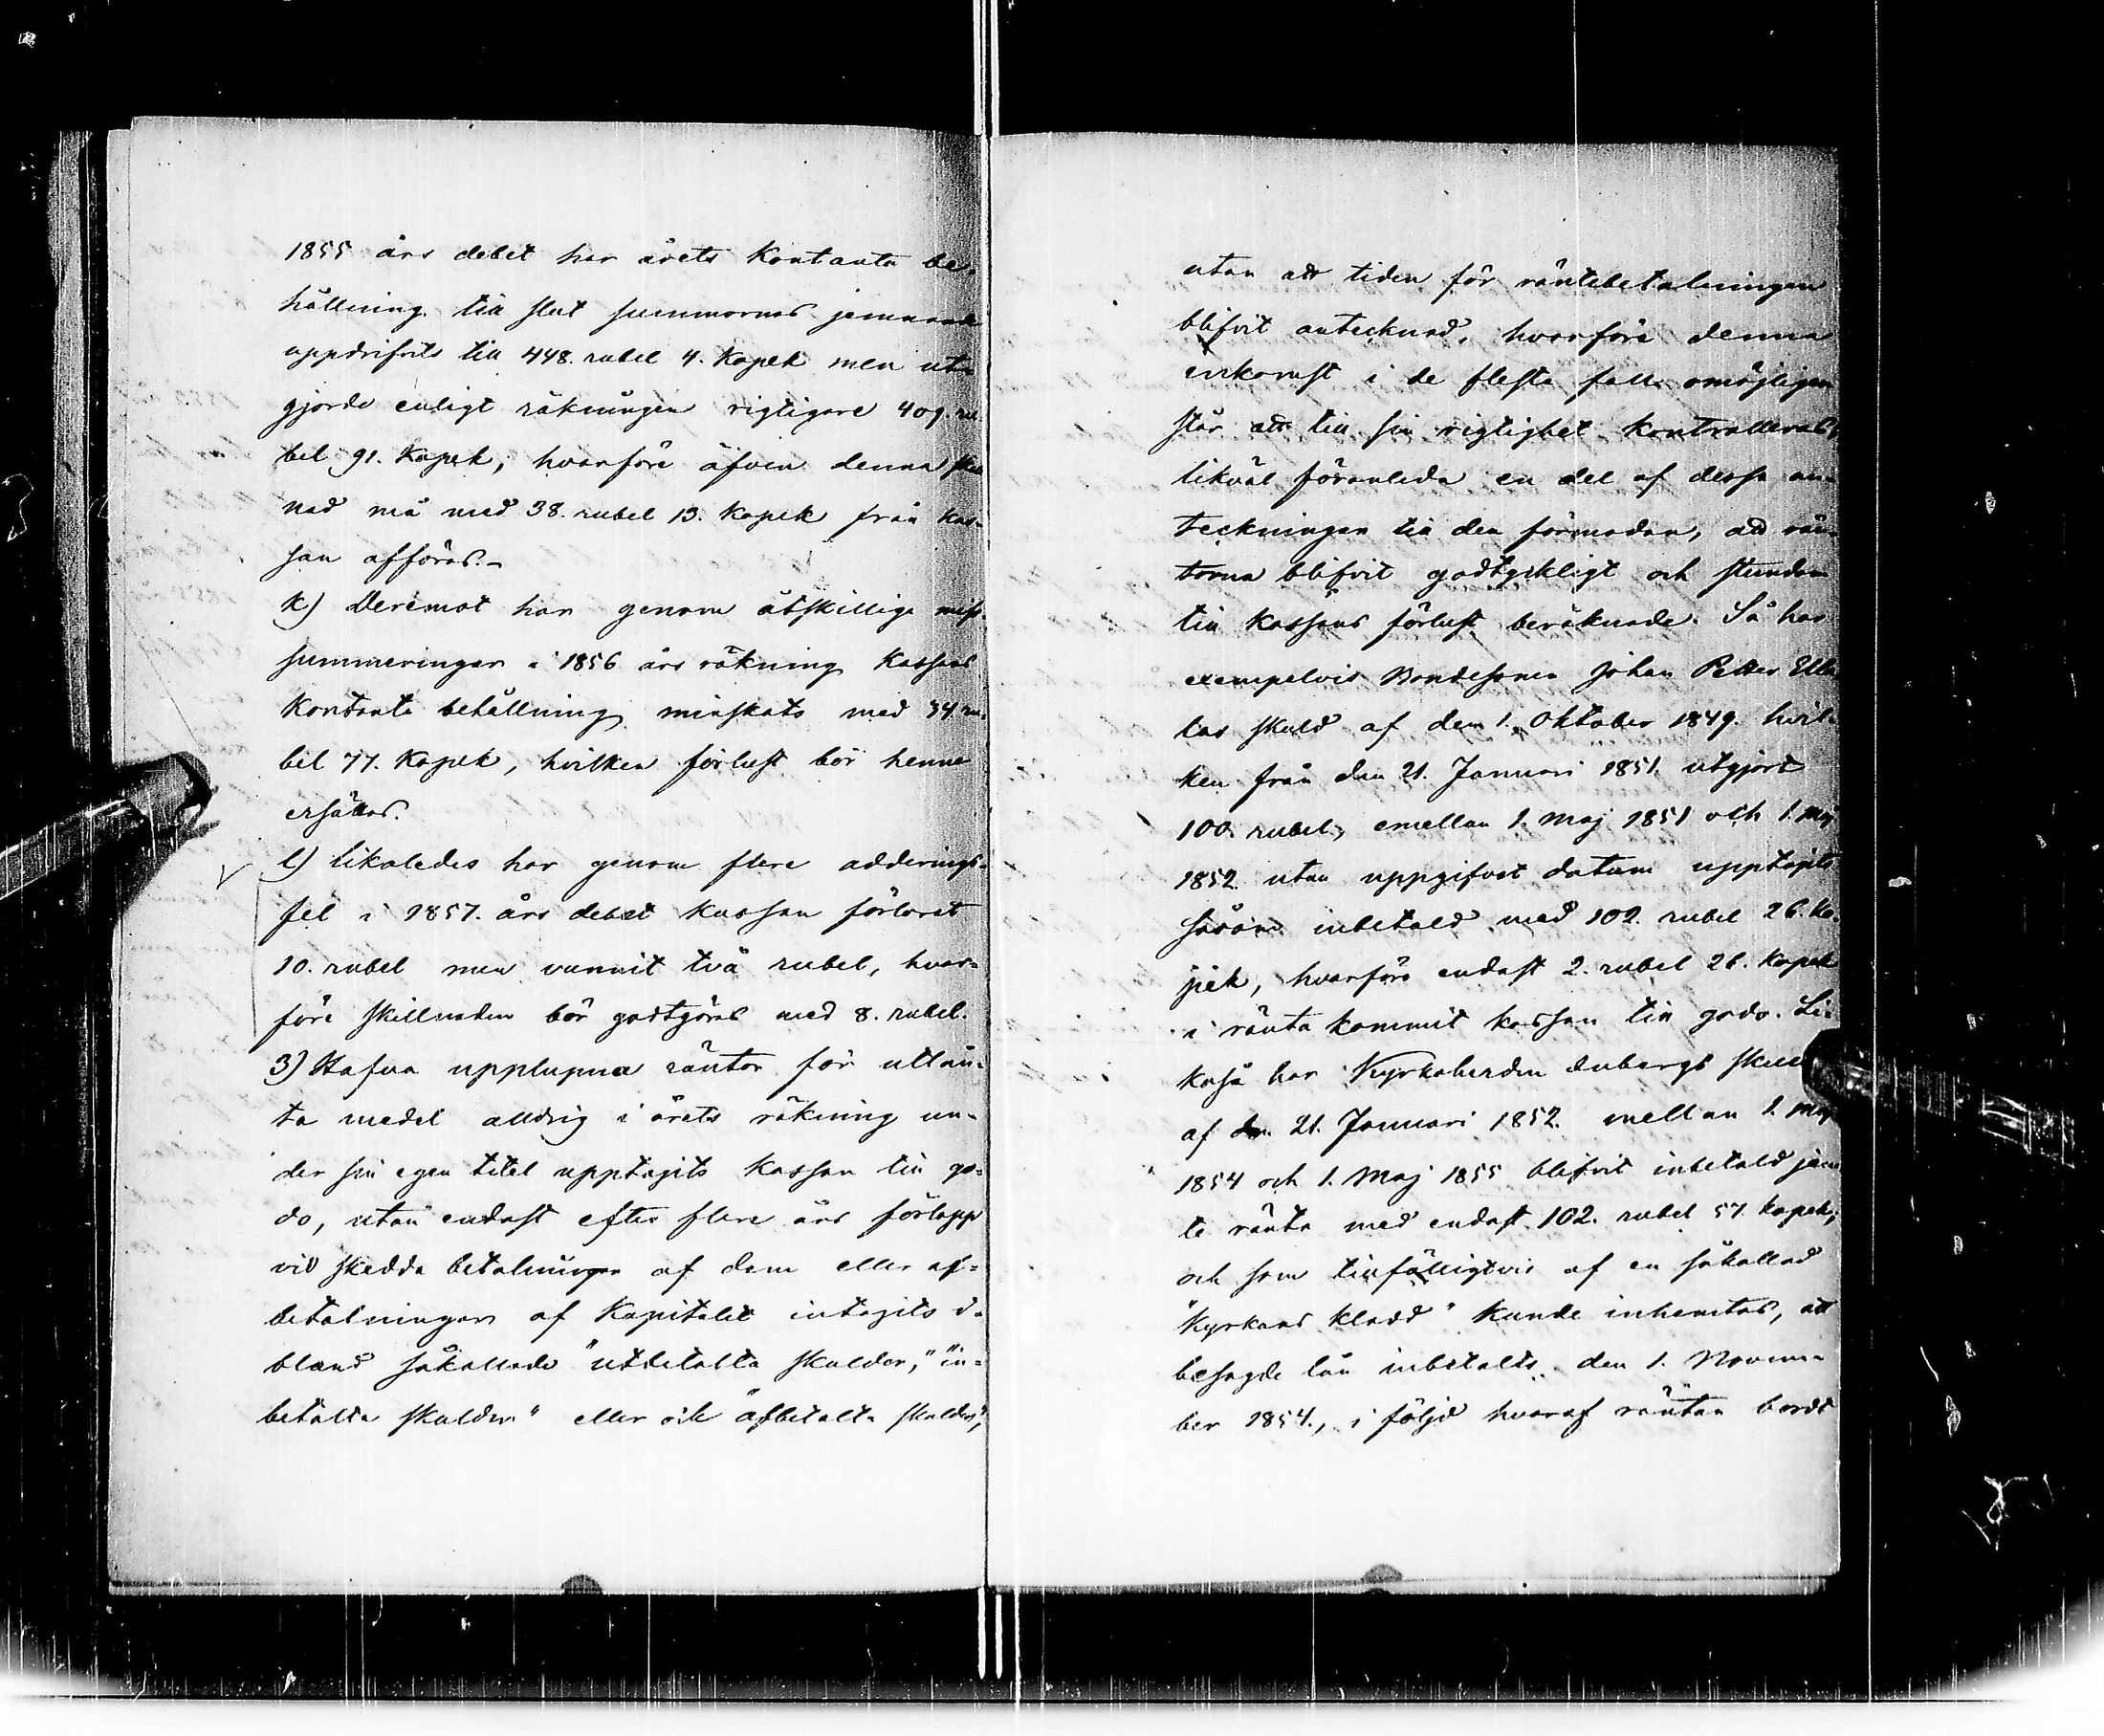 1855 års debet har årets Kontanta be-
hållning till slut summornas jemnande
uppdrifvits till 448. rubel 4. Kopek men ut-
gjorde enligt räkningen rigtigare 409. ru
bel 91. Kopek; hvarföre äfven denna skil
nad må med 38. rubel 13. Kopek från kas-
san afföras.-
K) Deremot har genom åtskillige miss-
summeringar i 1856 års räkning Kassans
Kontanta behållning minskats med 34 ru-
bel 77. Kopek, hvilken förlust bör henne
ersättas.
l) likaledes har genom flere adderings-
fel i 1857. års debet kassan förlorat
10. rubel men vunnit två rubel, hvar-
före skillnaden bör godtgöras med 8. rubel.
3) Hafva upplupna räntor för utlån-
ta medel alldrig i årets räkning un-
der sin egen titel upptagits kassan till go-
do, utan endast efter flere års förlopp
vid skedda betalningar af dem eller af-
betalningar af Kapitalet intagits i-
bland såkallade "utbetalta skulder," "in-
betalta skulder" eller ock "afbetalta skulder",
utan att tiden för räntebetalningen
blifvit antecknad, hvarföre denna
inkomst i de flesta fall omöjligen
står att till sin rigtighet kontrolleras;
likväl föranleda en del af dessa an-
teckningar till den förmodan, att rän-
torna blifvit godtyckligt och stundom
till kassans förlust beräknade. Så har
exempelvis Bondesonen Johan Petter
skuld af dem 1. Oktober 1849. hvil-
ken från den 21. Januari 1851. utgjort
100. rubel, emellan 1. Maj 1851 och 1. Maj
1852 utan uppgifvet datum upptagits
såsom inbetald med 102. rubel 26. Ko-
pek, hvarföre endast 2. rubel 26. Kopek
i ränta kommit kassan till godo. Li-
kaså har Kyrkoherden Enbergs skuld
af den 21. Januari 1852. mellan 1. Maj
1854 och 1. Maj 1855 blifvit inbetald jem
te ränta med endast 102. rubel 57. kopek;
och som tillfälligtvis af en såkallad
"Kyrkans kladd" kunde inhemtas, att
besagde lån inbetalts den 1. Novem-
ber 1854., i följd hvaraf räntan bordt